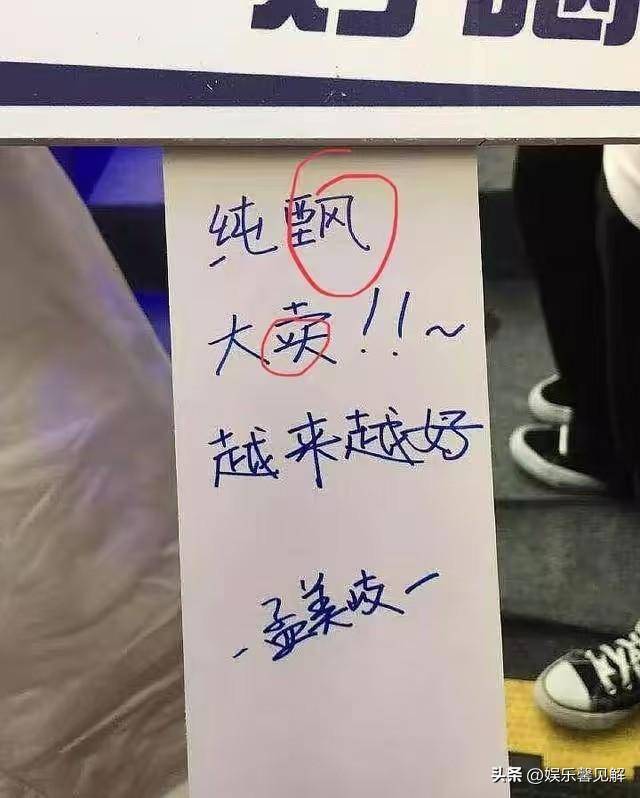 纯飘
大卖!!~
越来越好
孟美岐
头条 @娱乐馨见解